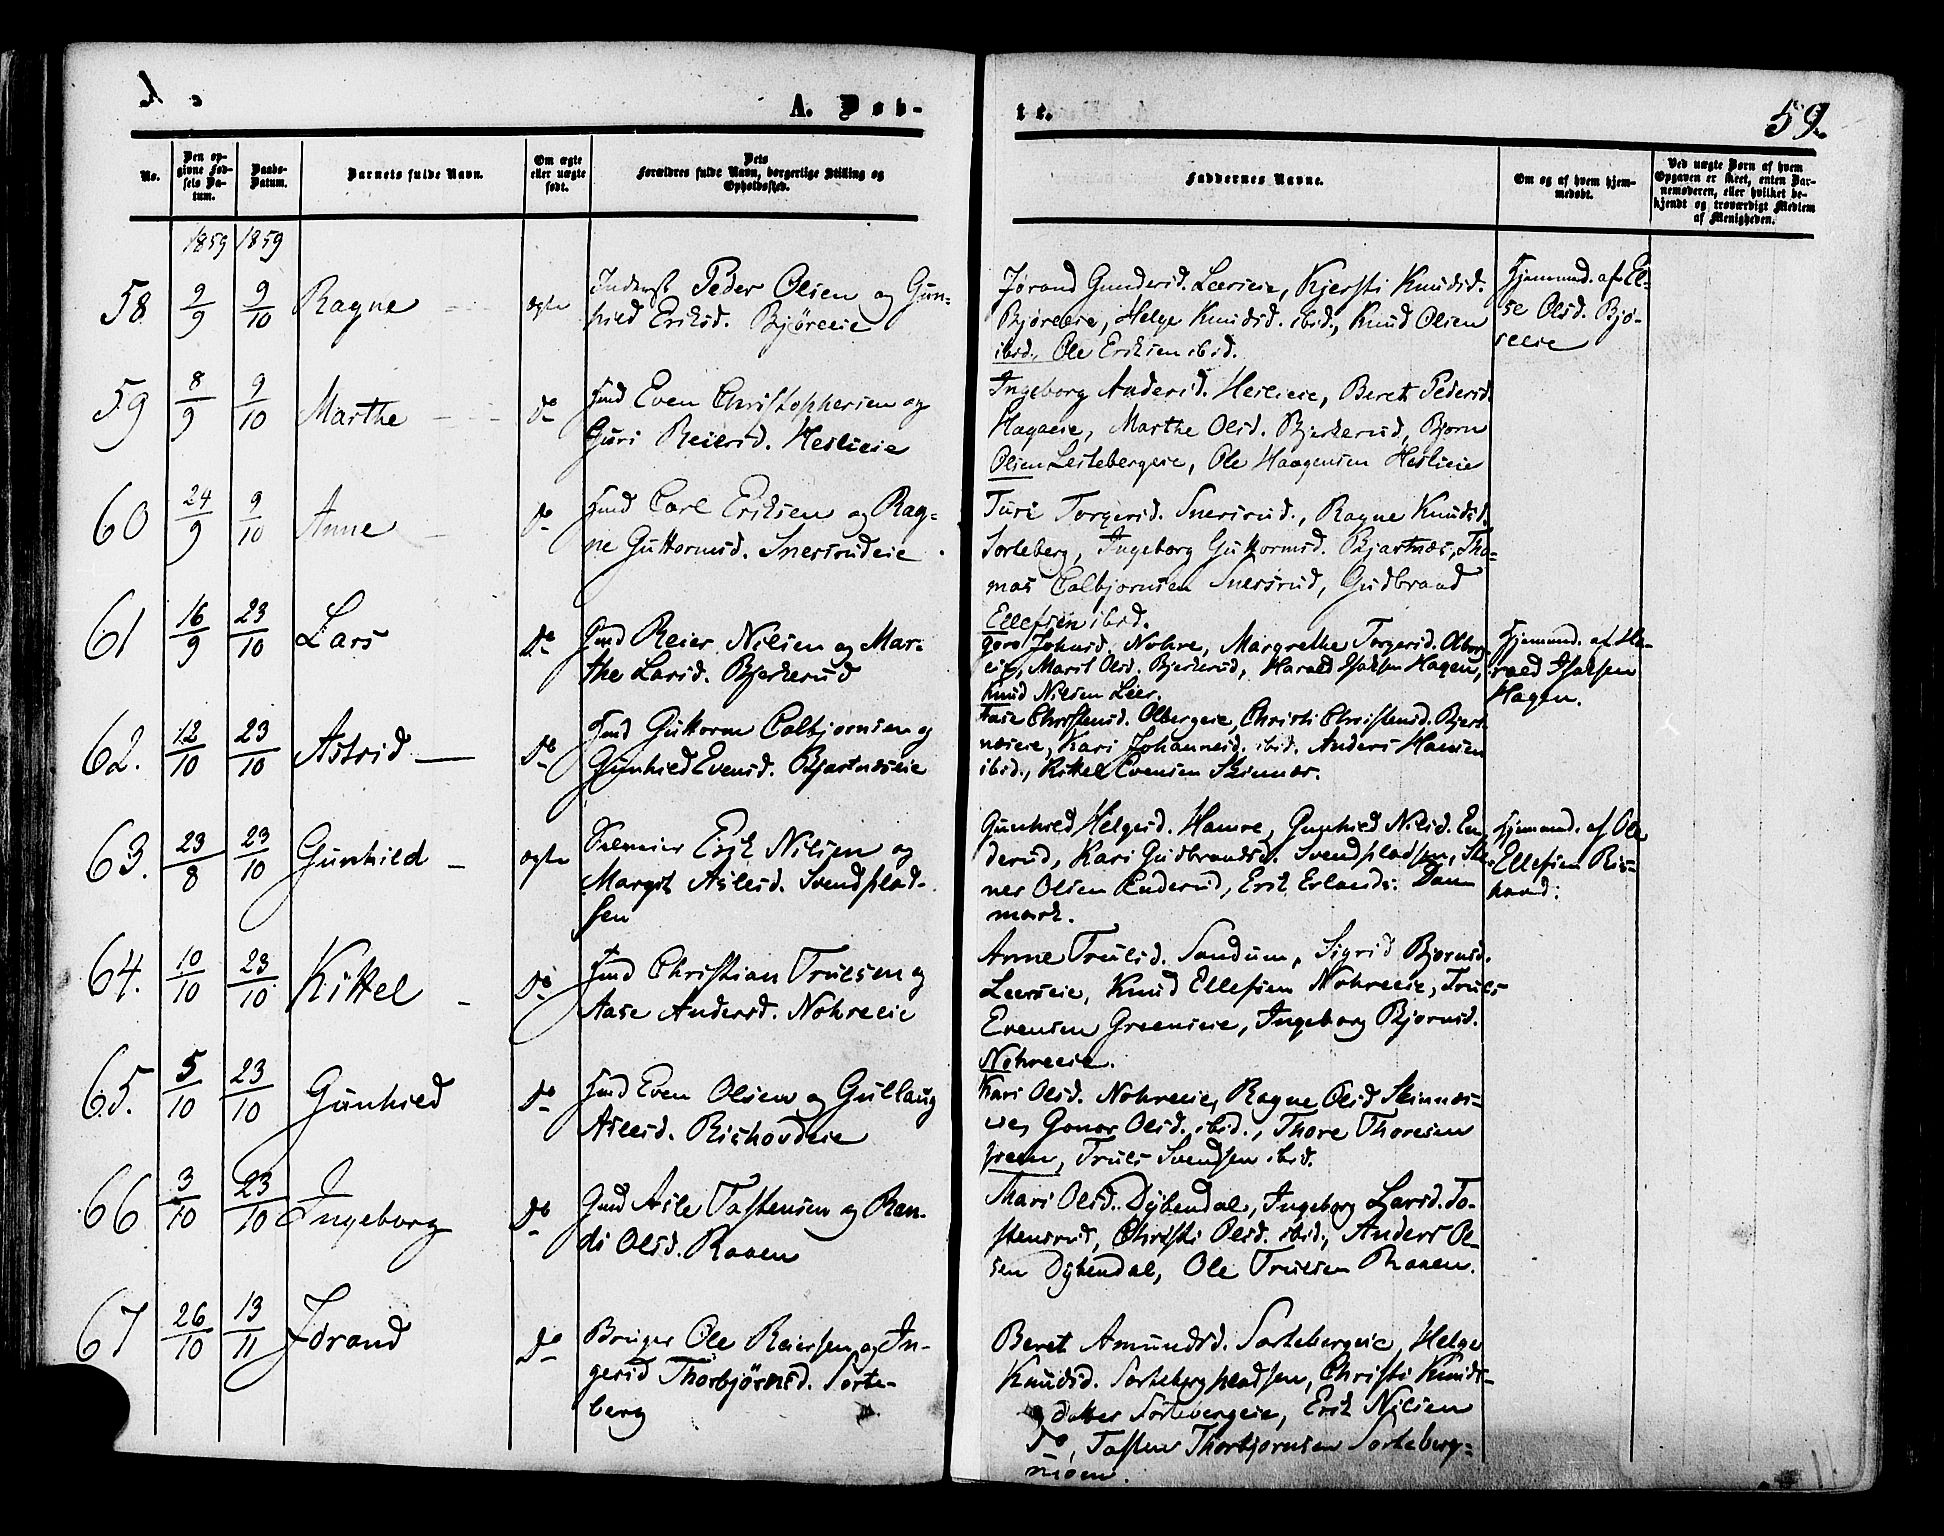 A. Døb-
te.
59.
No.
Den op-
givne Fød-
sels Da-
tum.
Daabs-
Datum.
Barnets fulde Navn.
Om ægte
eller uægte
født.
Dets
Forældres fulde Navn, borgerlige Stilling og
Opholdssted.
Faddernes Navne.
Om og af hvem hjem-
medøbt.
Ved uægte Børn af hvem
Opgaven er skeet, enten Bar-
nemoderen, eller hvilket be-
kjendt og troværdigt Medlem
af Menigheden.
1859 1859
58. 9/9 9/10 Ragne ægte
Inderst Peder Olsen og Gun-
hild Eriksd. Bjøreeie
Jørand Gundersd. Leerseie, Kjersti Knudsd.
Bjøreeie, Helge Knudsd. ibid., Knud Olsen
ibid., Ole Eriksen ibid.
Hjemmed. af El-
se Olsd. Bjø-
reeie
59 8/9 9/10 Marthe do
Hmd Even Christophersen og
Guri Reiersd. Heslieie
Ingeborg Andersd. Heslieie, Beret Pedersd.
Hagaeie, Marthe Olsd. Bjerkerud, Bjørn
Olsen Lestebergeie, Ole Haagensen Heslieie
60 24/9 9/10 Anne do
Hmd Carl Eriksen og Rag-
ne Guttormsd. Snersrudeie
Turi Torgersd. Snersrud., Ragne Knudsd.
Sorteberg, Ingeborg Guttormsd. Bjartnæs, Tho-
mas Colbjørnsen Snersrud, Gudbrand
Ellefsen ibid.
61 16/9 23/10 Lars do
Gmd Reier Nilsen og Mar-
the Larsd. Bjerkerud
Gøro Johnsd. Nohre, Margrethe Torgersd. Olberg-
eie, Marit Olsd. Bjerkerud, Harald Isaksen Hagen,
Knud Nilsen Leer.
Hjemmed. af Ha-
rald Isaksen
Hagen.
62. 12/10 23/10 Astrid do
Hmd Guttorm Colbjørnsen og
Gunhild Evensd. Bjartnæseie
Aase Christensd. Olbergeie, Christi Christensd. Bjert-
næseie, Kari Johannesd. ibid. Anders Hansen
ibid., Kittel Evensen Skinnæs.
63. 23/8 23/10 Gunhild ægte
Erik Nilsen og
Margit Aslesd. Svendsplad-
sen
Gunhild Helgesd. Hamre, Gunhild Nilsd. En-
derud, Kari Gudbrandsd. Svendspladsen, Ste-
ner Olsen Enderud, Erik Erlands: Dan
mark.
Hjemmed. af Ole
Ellefsen Ris-
hovd:
64. 10/10 23/10 Kittel do
Hmd Christian Trulsen og
Aase Andersd. Nohreeie
Anne Trulsd. Sandum, Sigrid Bjørnsd.
Leerseie, Knud Ellefsen Nohreeie, Truls
Evensen Greenseie, Ingeborg Bjørnsd.
Nohreeie.
65. 5/10 23/10 Gunhild do
Hmd Even Olsen og Gullaug
Aslesd. Rishovdeie
Kari Olsd. Nohreeie, Ragne Olsd Skinnæs-
eie, Gonor Olsd. ibid., Thore Thoresen
Green, Truls Svendsen ibid.
66 3/10 23/10 Ingeborg do
Gmd Asle Tostensen og Ran-
di Olsd. Raaen
Mari Olsd. Dybendal, Ingeborg Larsd. To-
stensrud, Christi Olsd. ibid., Anders Ol-
sen Dybendal, Ole Trulsen Raaen.
67 26/10 13/11 Jørand do
Bruger Ole Reiersen og In-
gerid Thorbjørnsd. Sorte-
berg
Beret Amundsd. Sortebergeie, Helge
Knudsd. Sortebergpladsen, Christi Knuds-
datter Sortebergeie, Erik Nilsen
do, Tosten Thorbjørnsen Sorteberg-
moen.